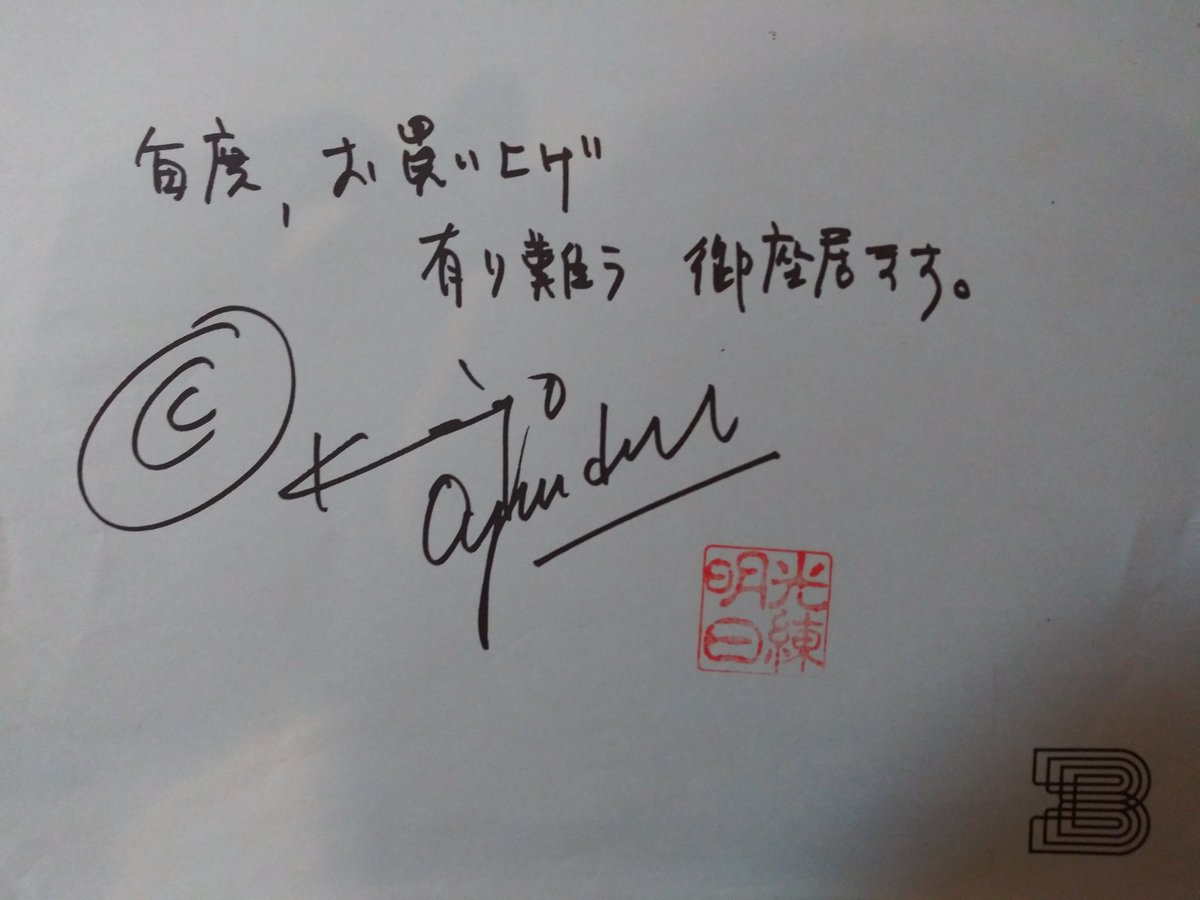 毎度、お買い上げ
有り難う 御座居ます。
©
光練
明日
B